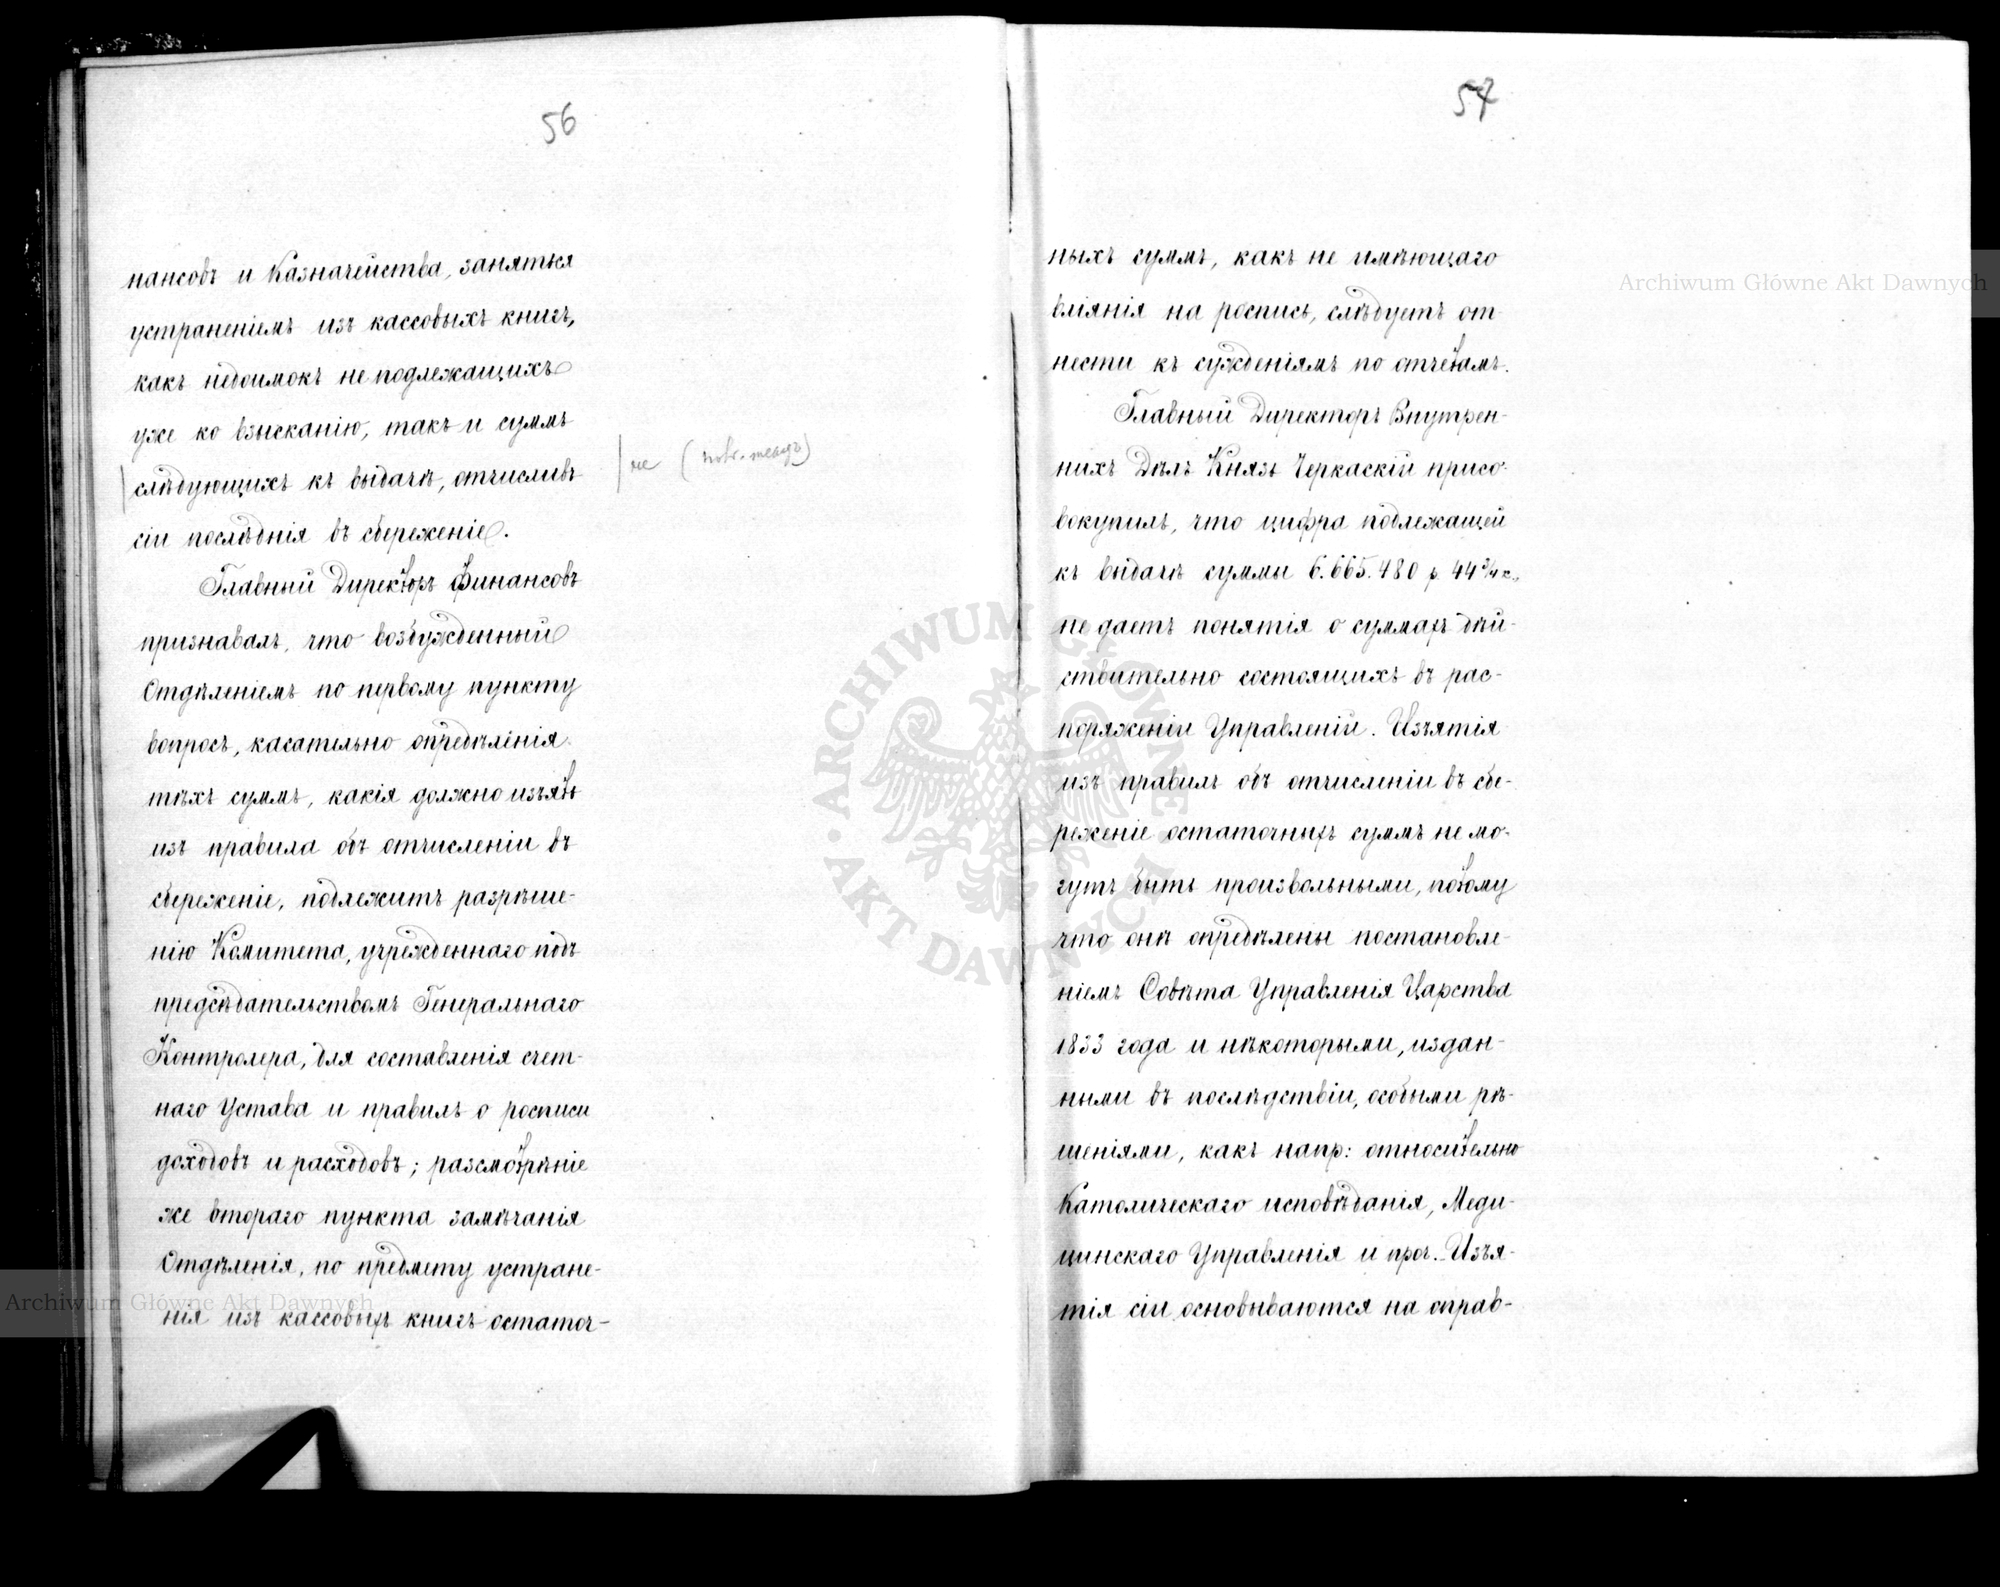 56
нансовъ и Казначейства, заняться
устраненіемъ изъ кассовыхъ книгъ,
какъ недоимокъ не подлежащихъ
уже ко взысканію, такъ и суммъ
слѣдующихъ къ выдачѣ, отчисливъ
не (
сіи послѣднія въ сбереженіе.
Главный Директоръ Финансовъ
признавалъ, что возбужденный
Отдѣленіемъ по первому пункту
вопросъ, касательно опредѣленія
тѣхъ суммъ, какія должно изъять
изъ правила объ отчисленіи въ
сбереженіе, подлежитъ разрѣше-
нію Комитета, учрежденнаго подъ
предсѣдательствомъ Генеральнаго
Контролера, для составленія счет-
наго Устава и правилъ о росписи
доходовъ и расходовъ; разсмотрѣніе
же втораго пункта замѣчанія
Отдѣленія, по предмету устране-
нія изъ кассовыхъ книгъ остаточ-
57
ныхъ суммъ, какъ не имѣющаго
вліянія на роспись, слѣдуетъ от-
нести къ сужденіямъ по отчетамъ.
Главный Директоръ Внутрен-
нихъ Дѣлъ Князь Черкаскій присо-
вокупилъ, что цифра подлежащей
къ выдачѣ суммы 6.665.480 р 44¾ к.,
не даетъ понятія о суммахъ дѣй-
ствительно состоящихъ въ рас-
поряженіи Управленій. Изъятія
изъ правилъ объ отчисленіи въ сбе-
реженіе остаточныхъ суммъ не мо-
гутъ быть произвольными, потому
что онѣ опредѣлены постановле-
ніемъ Совѣта Управленія Царства
1833 года и нѣкоторыми, издан-
ными въ послѣдствіи, особыми рѣ-
шеніями, какъ напр: относительно
Католическаго исповѣданія, Меди-
цинскаго Управленія и проч. Изъя-
тія сіи основываются на справ-
Archiwum Główne Akt Dawnych
ARCHIWUM GŁÓWNE AKT DAWNYCH
Archiwum Główne Akt Dawnych